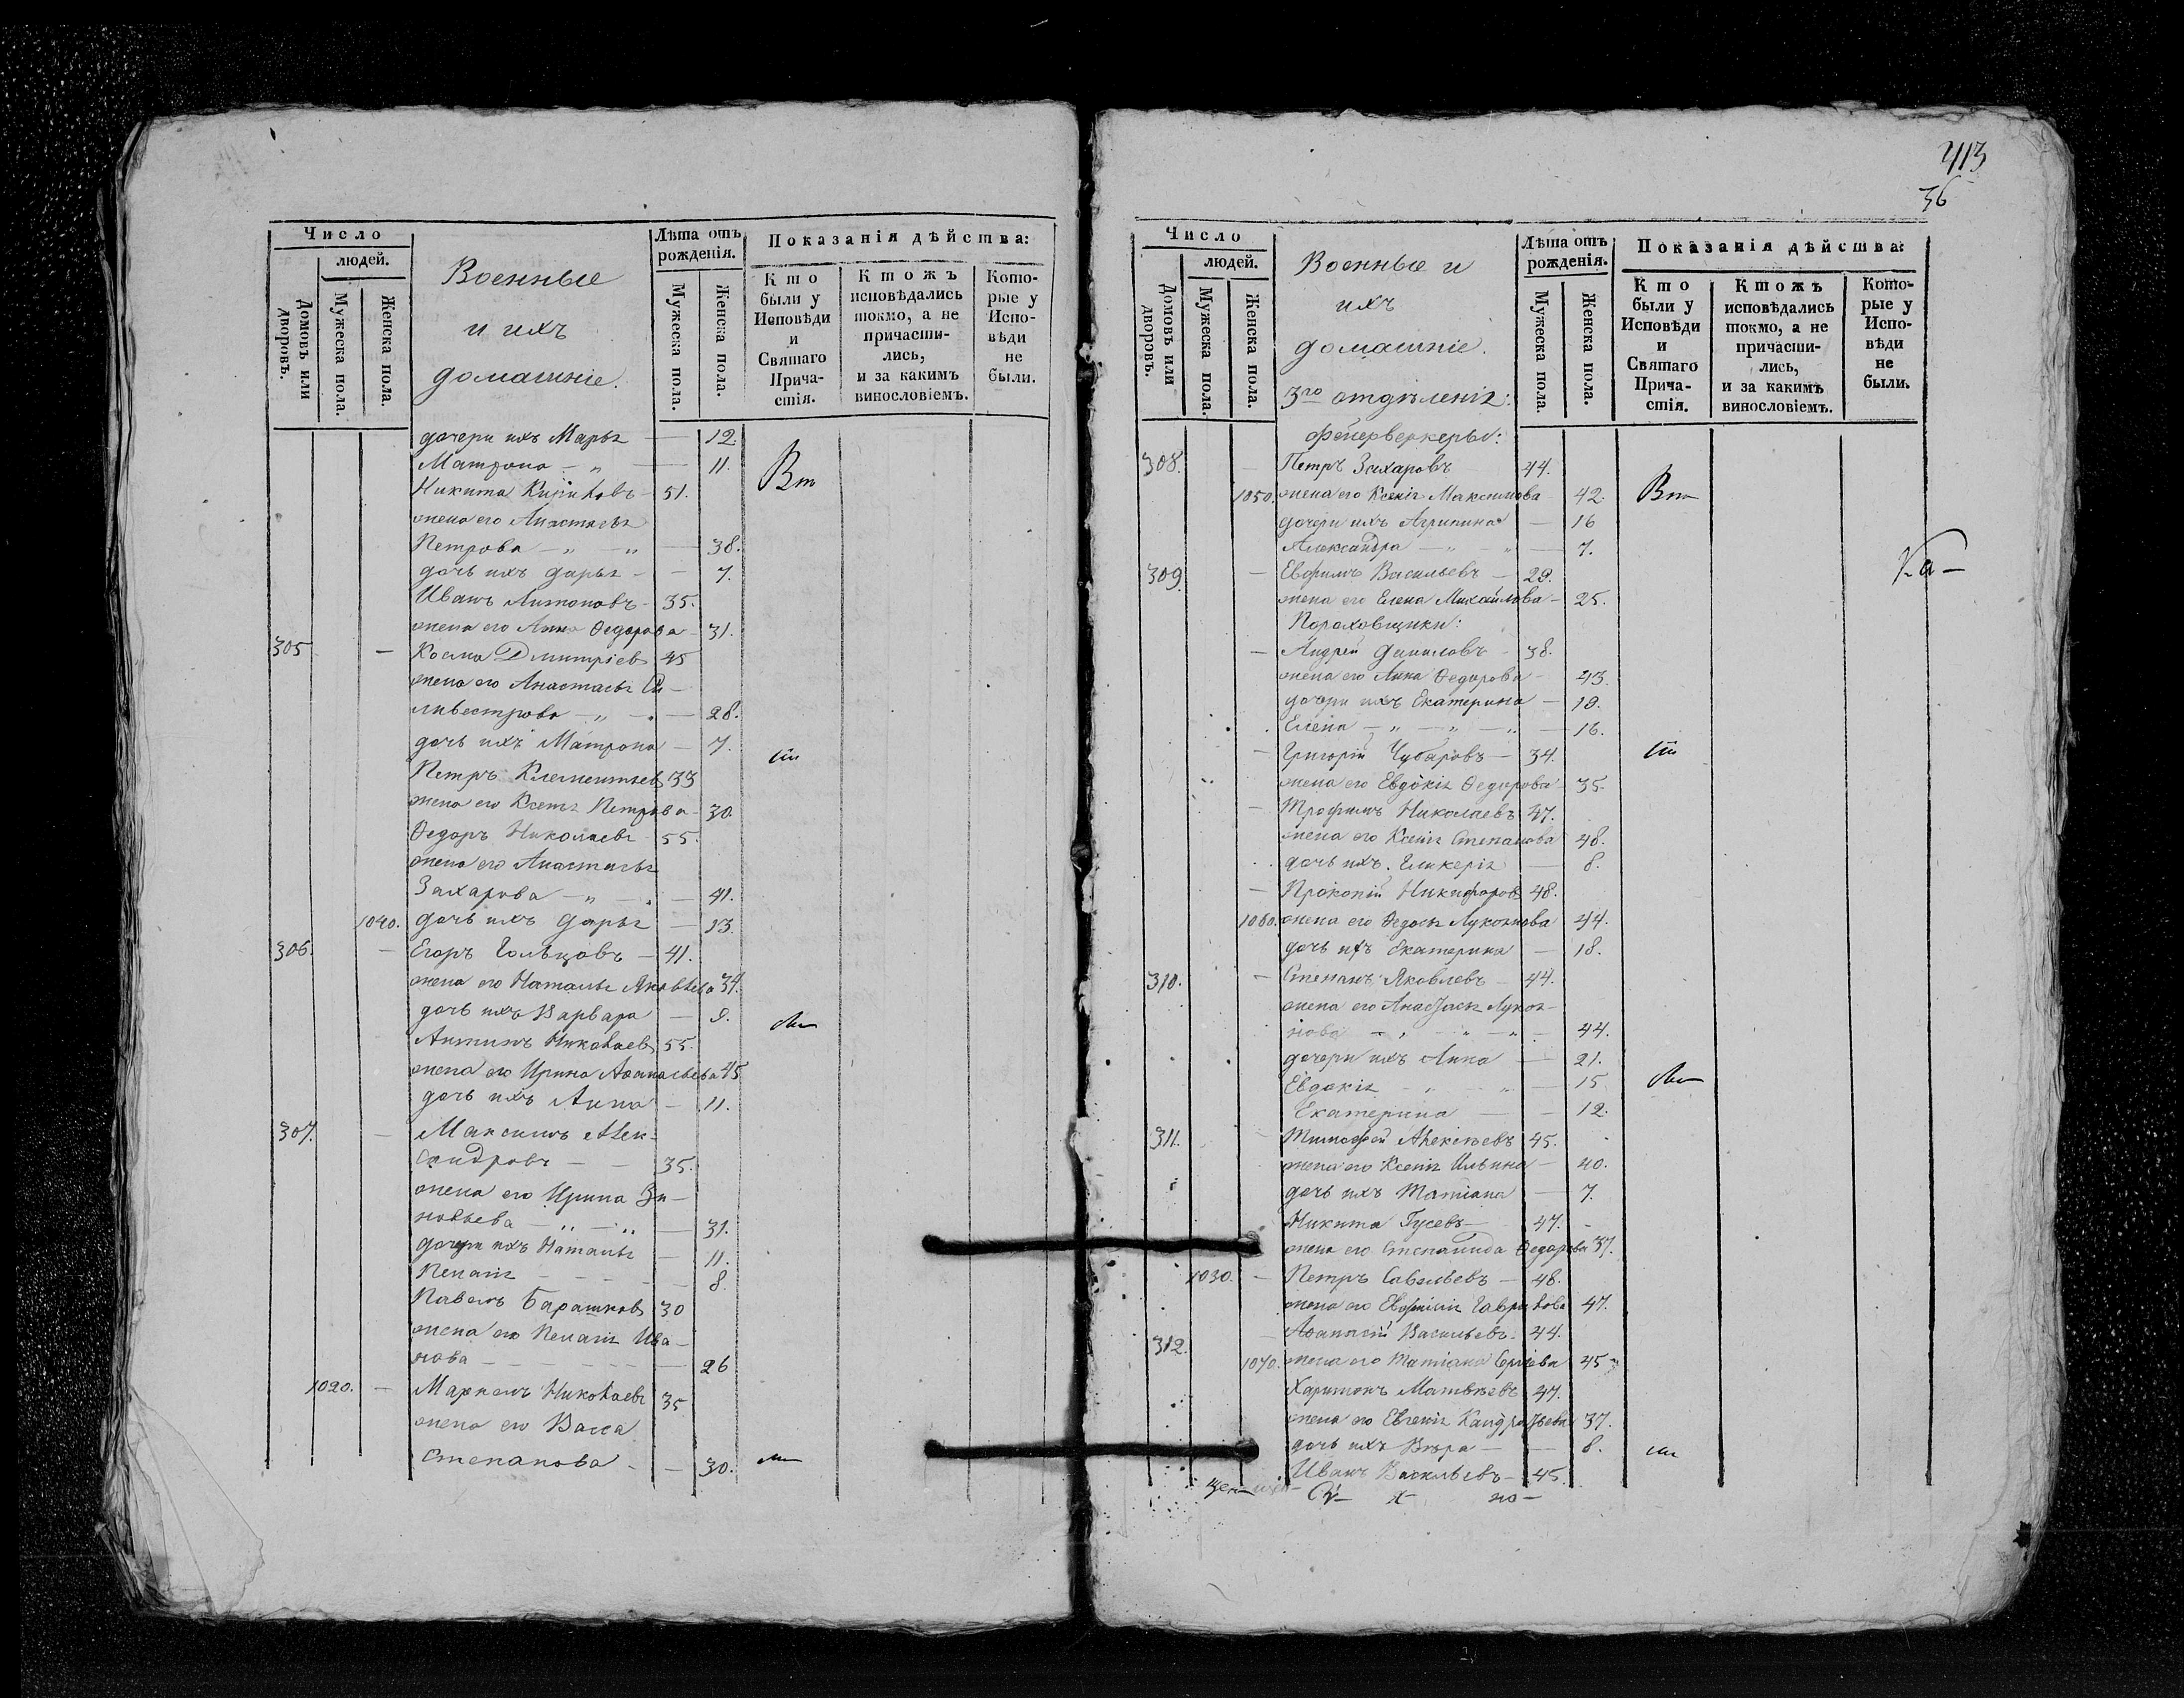 Число
людей.
Домовъ или дворовъ.
Мужеска пола.
Женска пола.
Военные
и ихъ
домашніе.
Лѣта отъ рожденія.
Мужеска пола.
Женска пола.
Показанія дѣйства:
Кто были у Исповѣди и Святаго Причастія.
Ктожъ исповѣдались токмо, а не причастились, и за какимъ винословіемъ.
Которые у Исповѣди не были.
дочери ихъ Марья — 12.
Матрона — „ — 11.
Никита 51.
жена его Анастасья
Петрова — „ — „ — 38.
дочь ихъ Дарья — 7.
Иванъ Антоновъ 35.
жена его Анна Ѳедорова 31.
305 — Косма Дмитріевъ 45
жена его Анастасья Си-
ливестрова — „ — 28.
дочь ихъ Матрона — 7.
Петръ Клементьевъ 33
жена его Ксенья Петрова 30.
Ѳедоръ Николаевъ 55.
жена его Анастасья
Захарова — „ — 41.
1040. дочь ихъ Дарья — 13.
306. — Егоръ Гольцовъ — 41.
жена его Наталья Яковлева 34.
дочь ихъ Варвара — 9.
Антипъ Николаевъ 55.
жена его Ирина Аѳанасьева 45
дочь ихъ Анна — 11.
307. — Максимъ Алек-
сандровъ — 35.
жена его Ирина Зи-
новьева — „ — „ — 31.
дочери ихъ Наталья — 11.
Пелагія — 8.
Павелъ Барашковъ 30
жена его Пелагія Ива-
нова — 26
1020. — Маркелъ Николаевъ 35
жена его Васса
Степанова — 30.
413
36
Число
людей.
Домовъ или дворовъ.
Мужеска пола.
Женска пола.
Военные и
ихъ
домашніе.
3го отдѣленія:
Лѣта отъ рожденія.
Мужеска пола.
Женска пола.
Показанія дѣйства:
Кто были у Исповѣди и Святаго Причастія.
Ктожъ исповѣдались токмо, а не причастились, и за какимъ винословіемъ.
Которые у Исповѣди не были.
фейерверкеры:
308. — Петръ Захаровъ 44.
1050. жена его Ксенія Максимова 42.
дочери ихъ Агрипина — 16
Александра — „ — 7.
309. — Евфимъ Васильевъ — 29.
жена его Елена Михайлова — 25.
Пороховщики:
— Андрей Даниловъ 38.
жена его Анна Ѳедорова — 43.
дочери ихъ Екатерина — 19.
Елена — „ — „ — „ — 16.
— Григорій Чубаровъ — 34.
жена его Евдокія Ѳедорова 35.
— Трофимъ Николаевъ 47.
жена его Ксенія Степанова 48.
дочь ихъ Гликерія — 8.
— Прокопій Никифоровъ 48.
1060. жена его Ѳедосья Лукоянова 44.
дочь ихъ Екатерина — 18.
310. — Степанъ Яковлевъ — 44.
жена его Анастасья Лукоя-
нова — „ — „ — 44.
дочери ихъ Анна — 21.
Евдокія — „ — „ — 15
Екатерина — 12.
311. — Тимофей Алексѣевъ 45.
жена его Ксенія Ильина — 40.
дочь ихъ Татіана — 7.
Никита Гусевъ — 47.
жена его Степанида Ѳедорова 37.
1030. — Петръ Савельевъ — 48.
жена его Евфимія Гаврилова 47.
312. — Аѳанасій Васильевъ 44.
1070. жена его Татіана Сергіева 45
Харитонъ Матвѣевъ 47.
жена его Евгенія Кандратьева 37.
дочь ихъ Вѣра — 8.
Иванъ Васильевъ — 45.